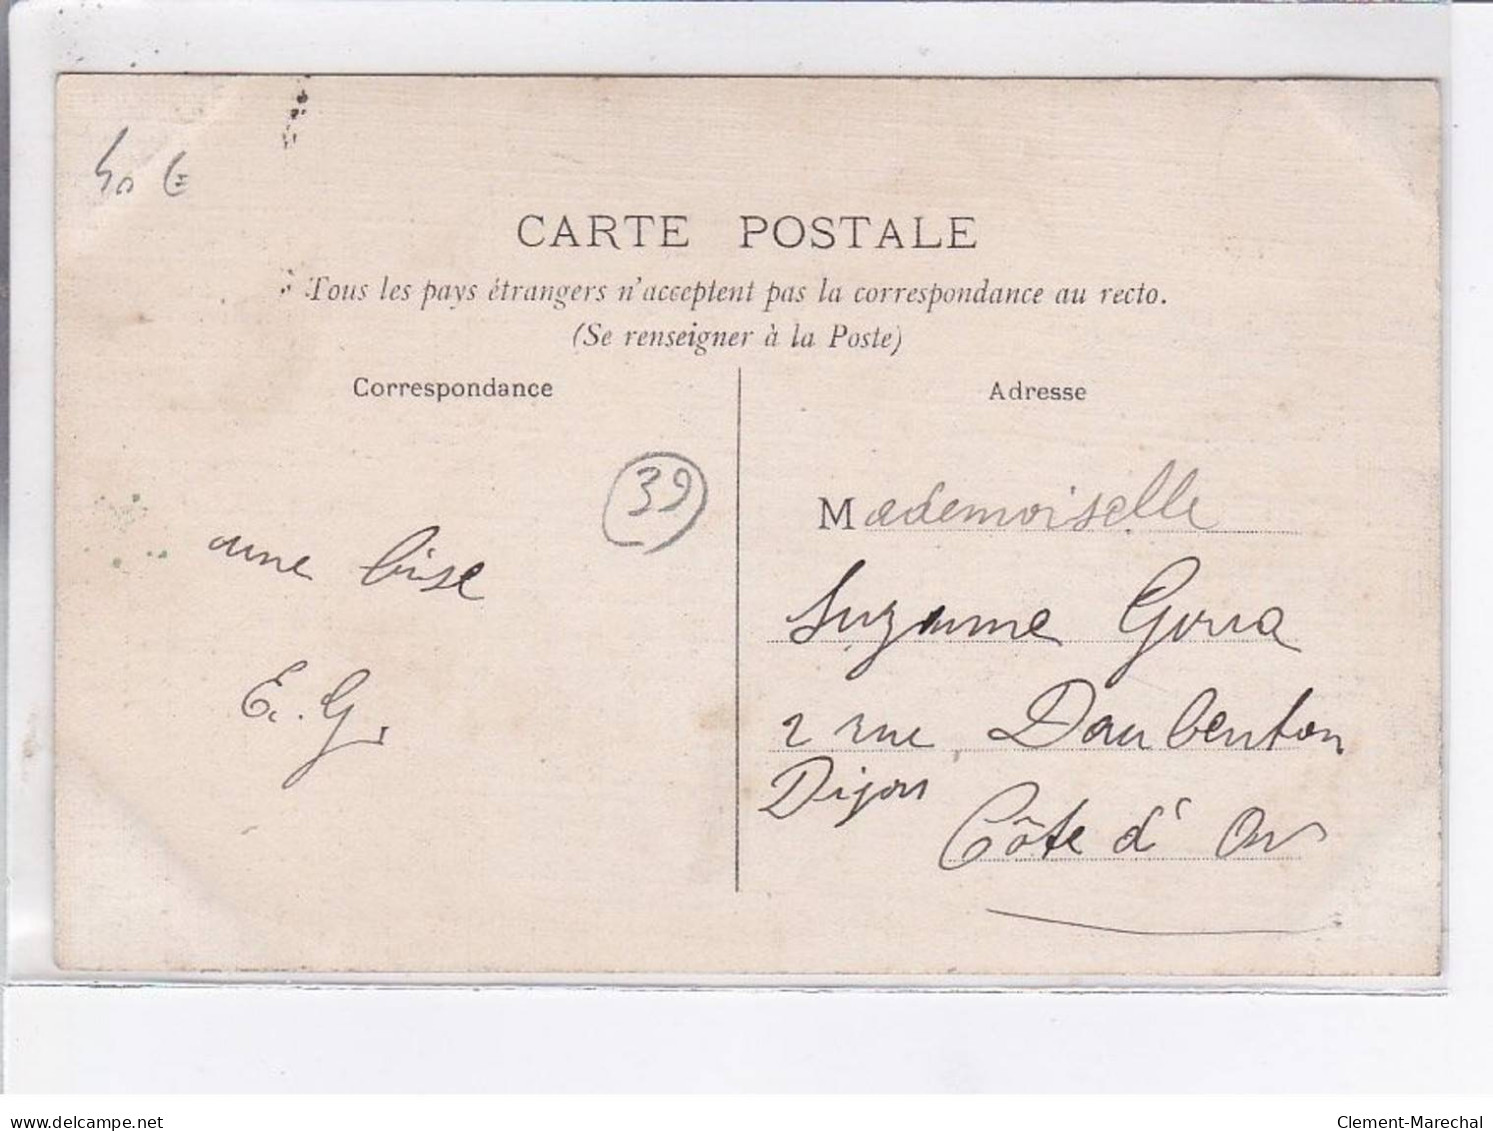 40 €
CARTE POSTALE
Tous les pays étrangers n'acceptent pas la correspondance au recto.
(Se renseigner à la Poste)
Correspondance
Adresse
39
Mademoiselle
une bise
Suzanne Gorra
E. G.
2 rue Daubenton
Dijon
Côte d'Or
delcampe.net
Clement-Marechal